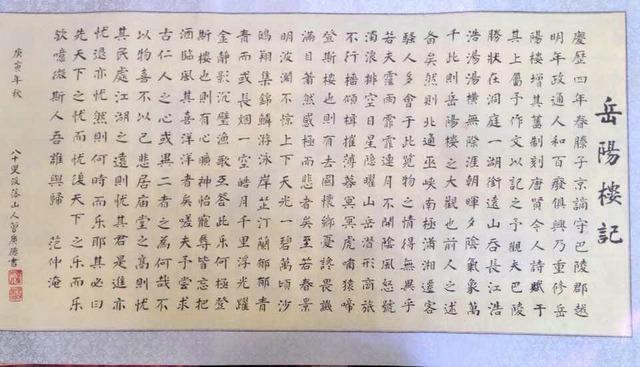 岳陽樓記
慶歷四年春滕子京謫守巴陵郡越
明年政通人和百廢俱興乃重修岳
陽樓增其舊制刻唐賢今人詩賦于
其上屬予作文以記之予觀夫巴陵
勝狀在洞庭一湖銜遠山吞長江浩
浩湯湯橫無際涯朝暉夕陰氣象萬
千此則岳陽樓之大觀也前人之述
备矣然則北通巫峽南極瀟湘遷客
騷人多會于此覽物之情得無異乎
若夫霪雨霏霏連月不開陰風怒號
濁浪排空日星隱曜山岳潛形商旅
不行檣傾楫摧薄暮冥冥虎嘯猿啼
登斯樓也則有去國懷鄉憂讒畏譏
滿目蕭然感極而悲者矣至若春景
明波瀾不驚上下天光一碧萬頃沙
鷗翔集錦鱗游泳岸芷汀蘭郁郁青
青而或長煙一空皓月千里浮光躍
金靜影沉璧漁歌互答此乐何極登
斯樓也則有心曠神怡寵辱皆忘把
酒臨風其喜洋洋者矣嗟夫予嘗求
古仁人之心或異二者之為何哉不
以物喜不以己悲居廟堂之高則憂
其民處江湖之遠則憂其君是進亦
憂退亦憂然則何時而乐耶其必曰
先天下之憂而憂後天下之乐而乐
歟噫微斯人吾誰與歸 范仲淹
庚寅年秋
八十叟 山人 廣德書